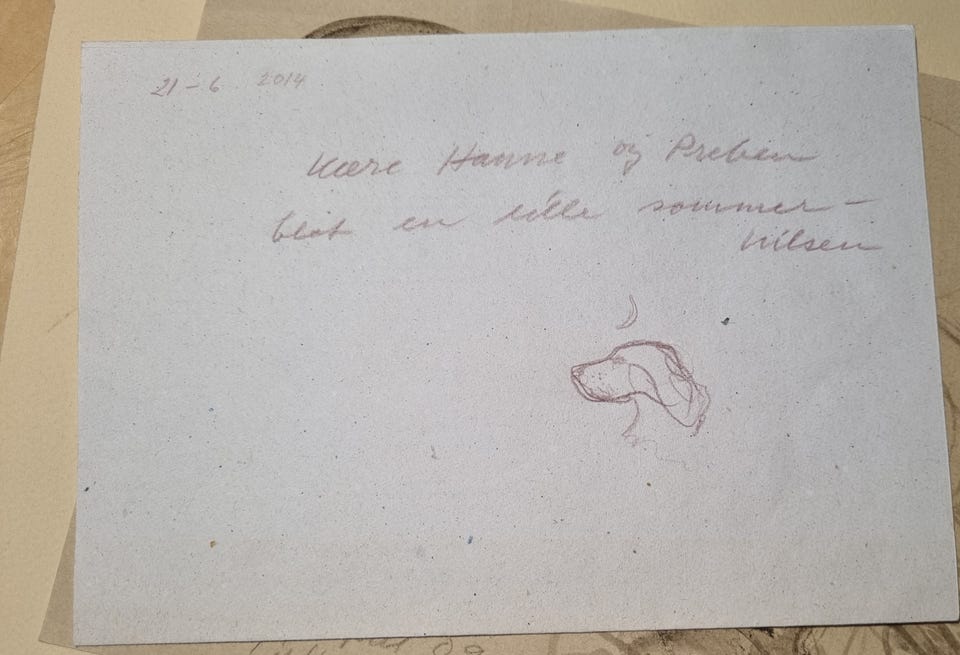 21-6 2014
Kære Hanne og Preben
blot en lille sommer-
hilsen